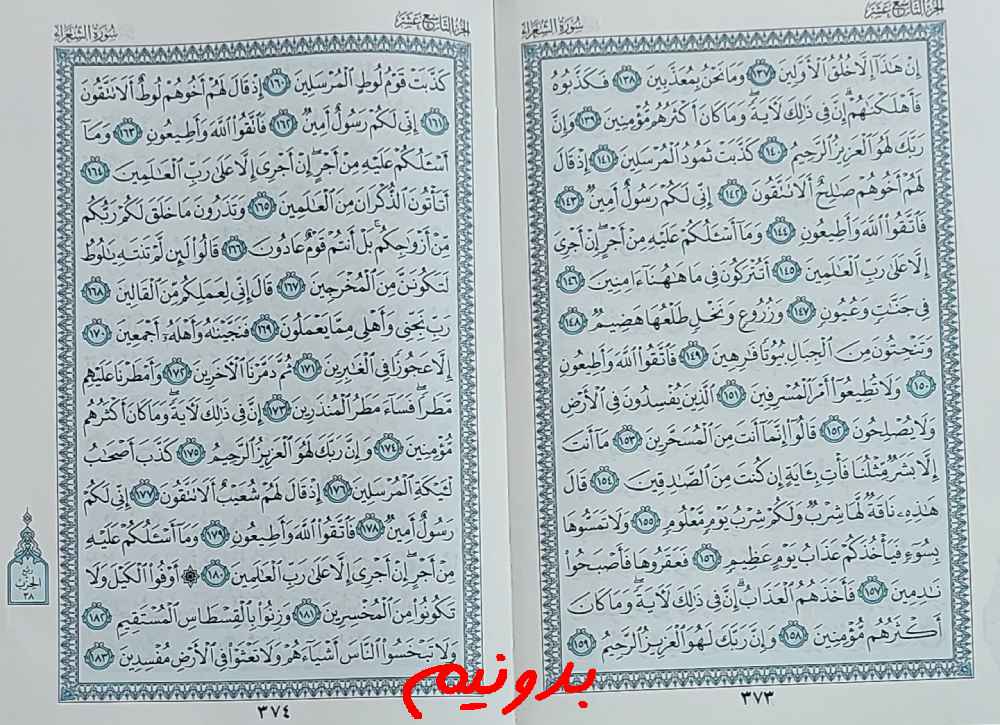 الجزء التاسع عشر
سورة الشعراء
إِنْ هَٰذَا إِلَّا خُلُقُ الْأَوَّلِينَ ١٣٧ وَمَا نَحْنُ بِمُعَذَّبِينَ ١٣٨ فَكَذَّبُوهُ
فَأَهْلَكْنَٰهُمْ إِنَّ فِي ذَٰلِكَ لَآيَةً وَمَا كَانَ أَكْثَرُهُم مُّؤْمِنِينَ ١٣٩ وَإِنَّ
رَبَّكَ لَهُوَ الْعَزِيزُ الرَّحِيمُ ١٤٠ كَذَّبَتْ ثَمُودُ الْمُرْسَلِينَ ١٤١ إِذْ قَالَ
لَهُمْ أَخُوهُمْ صَٰلِحٌ أَلَا تَتَّقُونَ ١٤٢ إِنِّي لَكُمْ رَسُولٌ أَمِينٌ ١٤٣
فَاتَّقُوا اللَّهَ وَأَطِيعُونِ ١٤٤ وَمَا أَسْـَٔلُكُمْ عَلَيْهِ مِنْ أَجْرٍ إِنْ أَجْرِيَ
إِلَّا عَلَىٰ رَبِّ الْعَٰلَمِينَ ١٤٥ أَتُتْرَكُونَ فِي مَا هَٰهُنَا آمِنِينَ ١٤٦
فِي جَنَّٰتٍ وَعُيُونٍ ١٤٧ وَزُرُوعٍ وَنَخْلٍ طَلْعُهَا هَضِيمٌ ١٤٨
وَتَنْحِتُونَ مِنَ الْجِبَالِ بُيُوتًا فَٰرِهِينَ ١٤٩ فَاتَّقُوا اللَّهَ وَأَطِيعُونِ
١٥٠ وَلَا تُطِيعُوا أَمْرَ الْمُسْرِفِينَ ١٥١ الَّذِينَ يُفْسِدُونَ فِي الْأَرْضِ
وَلَا يُصْلِحُونَ ١٥٢ قَالُوا إِنَّمَا أَنتَ مِنَ الْمُسَحَّرِينَ ١٥٣ مَا أَنتَ
إِلَّا بَشَرٌ مِّثْلُنَا فَأْتِ بِـَٔايَةٍ إِن كُنتَ مِنَ الصَّٰدِقِينَ ١٥٤ قَالَ
هَٰذِهِ نَاقَةٌ لَّهَا شِرْبٌ وَلَكُمْ شِرْبُ يَوْمٍ مَّعْلُومٍ ١٥٥ وَلَا تَمَسُّوهَا
بِسُوءٍ فَيَأْخُذَكُمْ عَذَابُ يَوْمٍ عَظِيمٍ ١٥٦ فَعَقَرُوهَا فَأَصْبَحُوا
نَٰدِمِينَ ١٥٧ فَأَخَذَهُمُ الْعَذَابُ إِنَّ فِي ذَٰلِكَ لَآيَةً وَمَا كَانَ
أَكْثَرُهُم مُّؤْمِنِينَ ١٥٨ وَإِنَّ رَبَّكَ لَهُوَ الْعَزِيزُ الرَّحِيمُ ١٥٩
٣٧٣
الجزء التاسع عشر
سورة الشعراء
كَذَّبَتْ قَوْمُ لُوطٍ الْمُرْسَلِينَ ١٦٠ إِذْ قَالَ لَهُمْ أَخُوهُمْ لُوطٌ أَلَا تَتَّقُونَ
١٦١ إِنِّي لَكُمْ رَسُولٌ أَمِينٌ ١٦٢ فَاتَّقُوا اللَّهَ وَأَطِيعُونِ ١٦٣ وَمَا
أَسْـَٔلُكُمْ عَلَيْهِ مِنْ أَجْرٍ إِنْ أَجْرِيَ إِلَّا عَلَىٰ رَبِّ الْعَٰلَمِينَ ١٦٤
أَتَأْتُونَ الذُّكْرَانَ مِنَ الْعَٰلَمِينَ ١٦٥ وَتَذَرُونَ مَا خَلَقَ لَكُمْ رَبُّكُم
مِّنْ أَزْوَٰجِكُم بَلْ أَنتُمْ قَوْمٌ عَادُونَ ١٦٦ قَالُوا لَئِن لَّمْ تَنتَهِ يَٰلُوطُ
لَتَكُونَنَّ مِنَ الْمُخْرَجِينَ ١٦٧ قَالَ إِنِّي لِعَمَلِكُم مِّنَ الْقَالِينَ ١٦٨
رَبِّ نَجِّنِي وَأَهْلِي مِمَّا يَعْمَلُونَ ١٦٩ فَنَجَّيْنَٰهُ وَأَهْلَهُ أَجْمَعِينَ ١٧٠
إِلَّا عَجُوزًا فِي الْغَٰبِرِينَ ١٧١ ثُمَّ دَمَّرْنَا الْآخَرِينَ ١٧٢ وَأَمْطَرْنَا عَلَيْهِم
مَّطَرًا فَسَاءَ مَطَرُ الْمُنذَرِينَ ١٧٣ إِنَّ فِي ذَٰلِكَ لَآيَةً وَمَا كَانَ أَكْثَرُهُم
مُّؤْمِنِينَ ١٧٤ وَإِنَّ رَبَّكَ لَهُوَ الْعَزِيزُ الرَّحِيمُ ١٧٥ كَذَّبَ أَصْحَٰبُ
لْـَٔيْكَةِ الْمُرْسَلِينَ ١٧٦ إِذْ قَالَ لَهُمْ شُعَيْبٌ أَلَا تَتَّقُونَ ١٧٧ إِنِّي لَكُمْ
رَسُولٌ أَمِينٌ ١٧٨ فَاتَّقُوا اللَّهَ وَأَطِيعُونِ ١٧٩ وَمَا أَسْـَٔلُكُمْ عَلَيْهِ
مِنْ أَجْرٍ إِنْ أَجْرِيَ إِلَّا عَلَىٰ رَبِّ الْعَٰلَمِينَ ١٨٠ ۞ أَوْفُوا الْكَيْلَ وَلَا
تَكُونُوا مِنَ الْمُخْسِرِينَ ١٨١ وَزِنُوا بِالْقِسْطَاسِ الْمُسْتَقِيمِ ١٨٢
وَلَا تَبْخَسُوا النَّاسَ أَشْيَاءَهُمْ وَلَا تَعْثَوْا فِي الْأَرْضِ مُفْسِدِينَ ١٨٣
الحزب
٣٨
٣٧٤
بدونیم